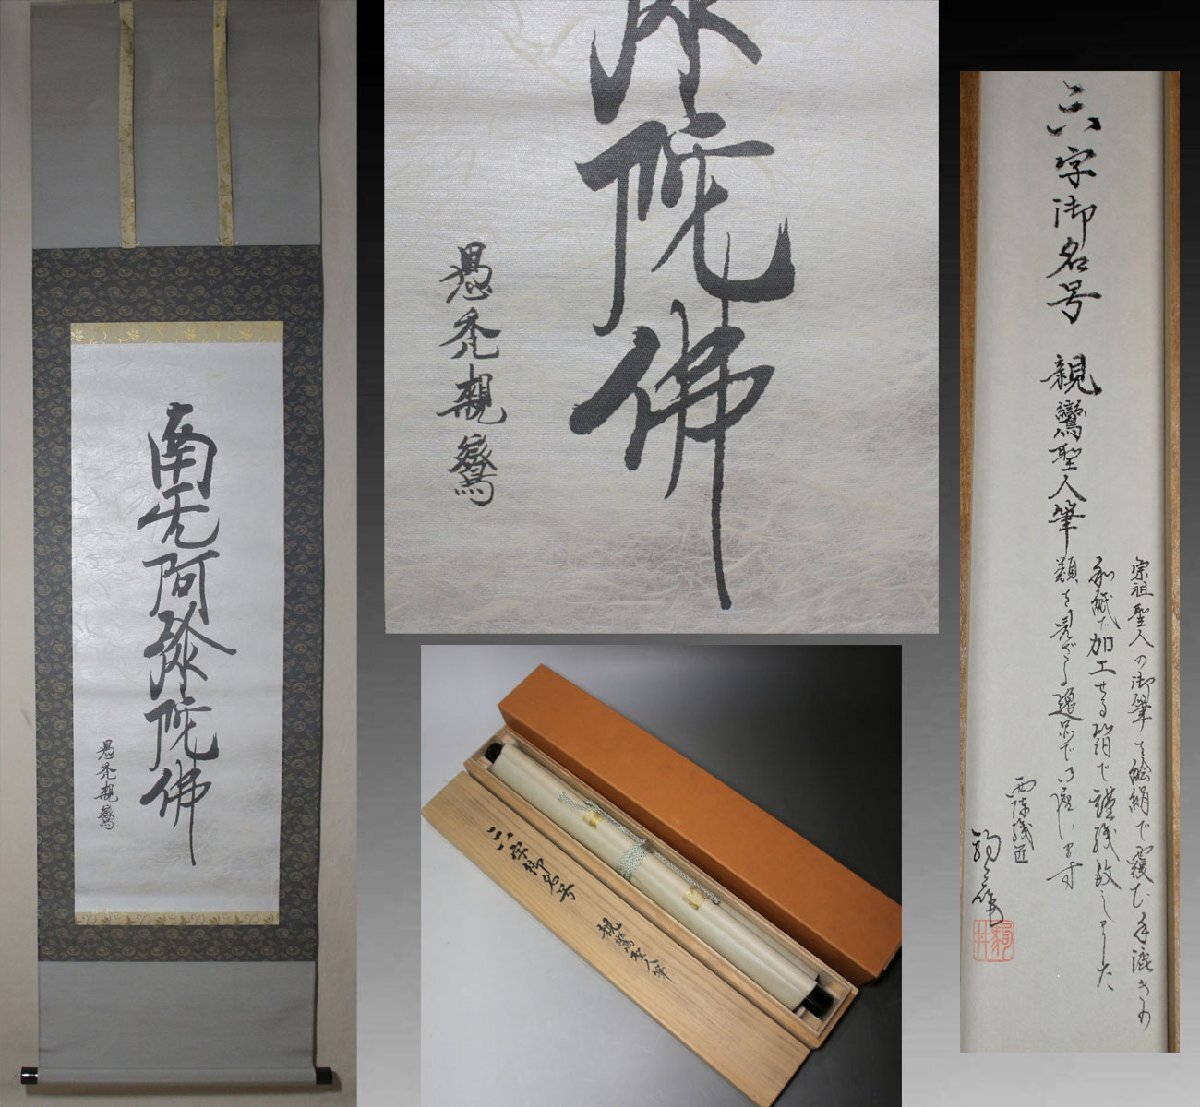 南无阿弥陀佛
愚禿親鸞
弥陀佛
愚禿親鸞
六字御名号 親鸞聖人筆
六字御名号 親鸞聖人筆
宗祖聖人の御筆を絵絹で
和紙に加工せる絹で謹織致しました
類を見ざる逸品で御座います
西陣織匠